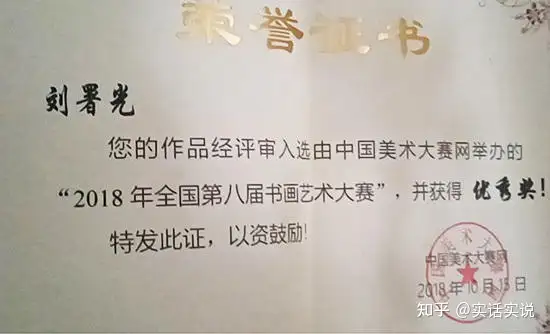 荣誉证书
刘署光
您的作品经评审入选由中国美术大赛网举办的
“2018年全国第八届书画艺术大赛”，并获得 优秀奖！
特发此证，以资鼓励！
中国美术大赛网
2018年10月15日
知乎 @实话实说